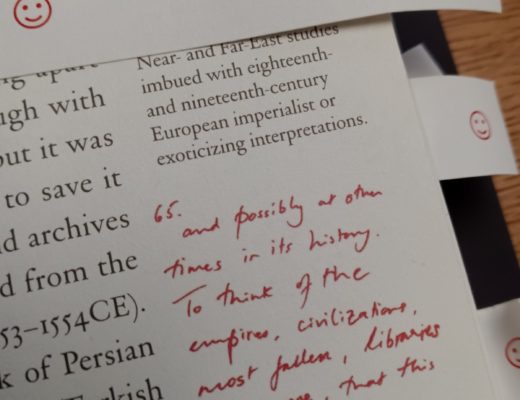 Near- and Far-East studies
imbued with eighteenth-
and nineteenth-century
European imperialist or
exoticizing interpretations.
ugh with
but it was
to save it
d archives
d from the
53–1554CE).
k of Persian
65. and possibly at other
times in its history.
To think of the
empires, civilizations,
most fallen, libraries
that this